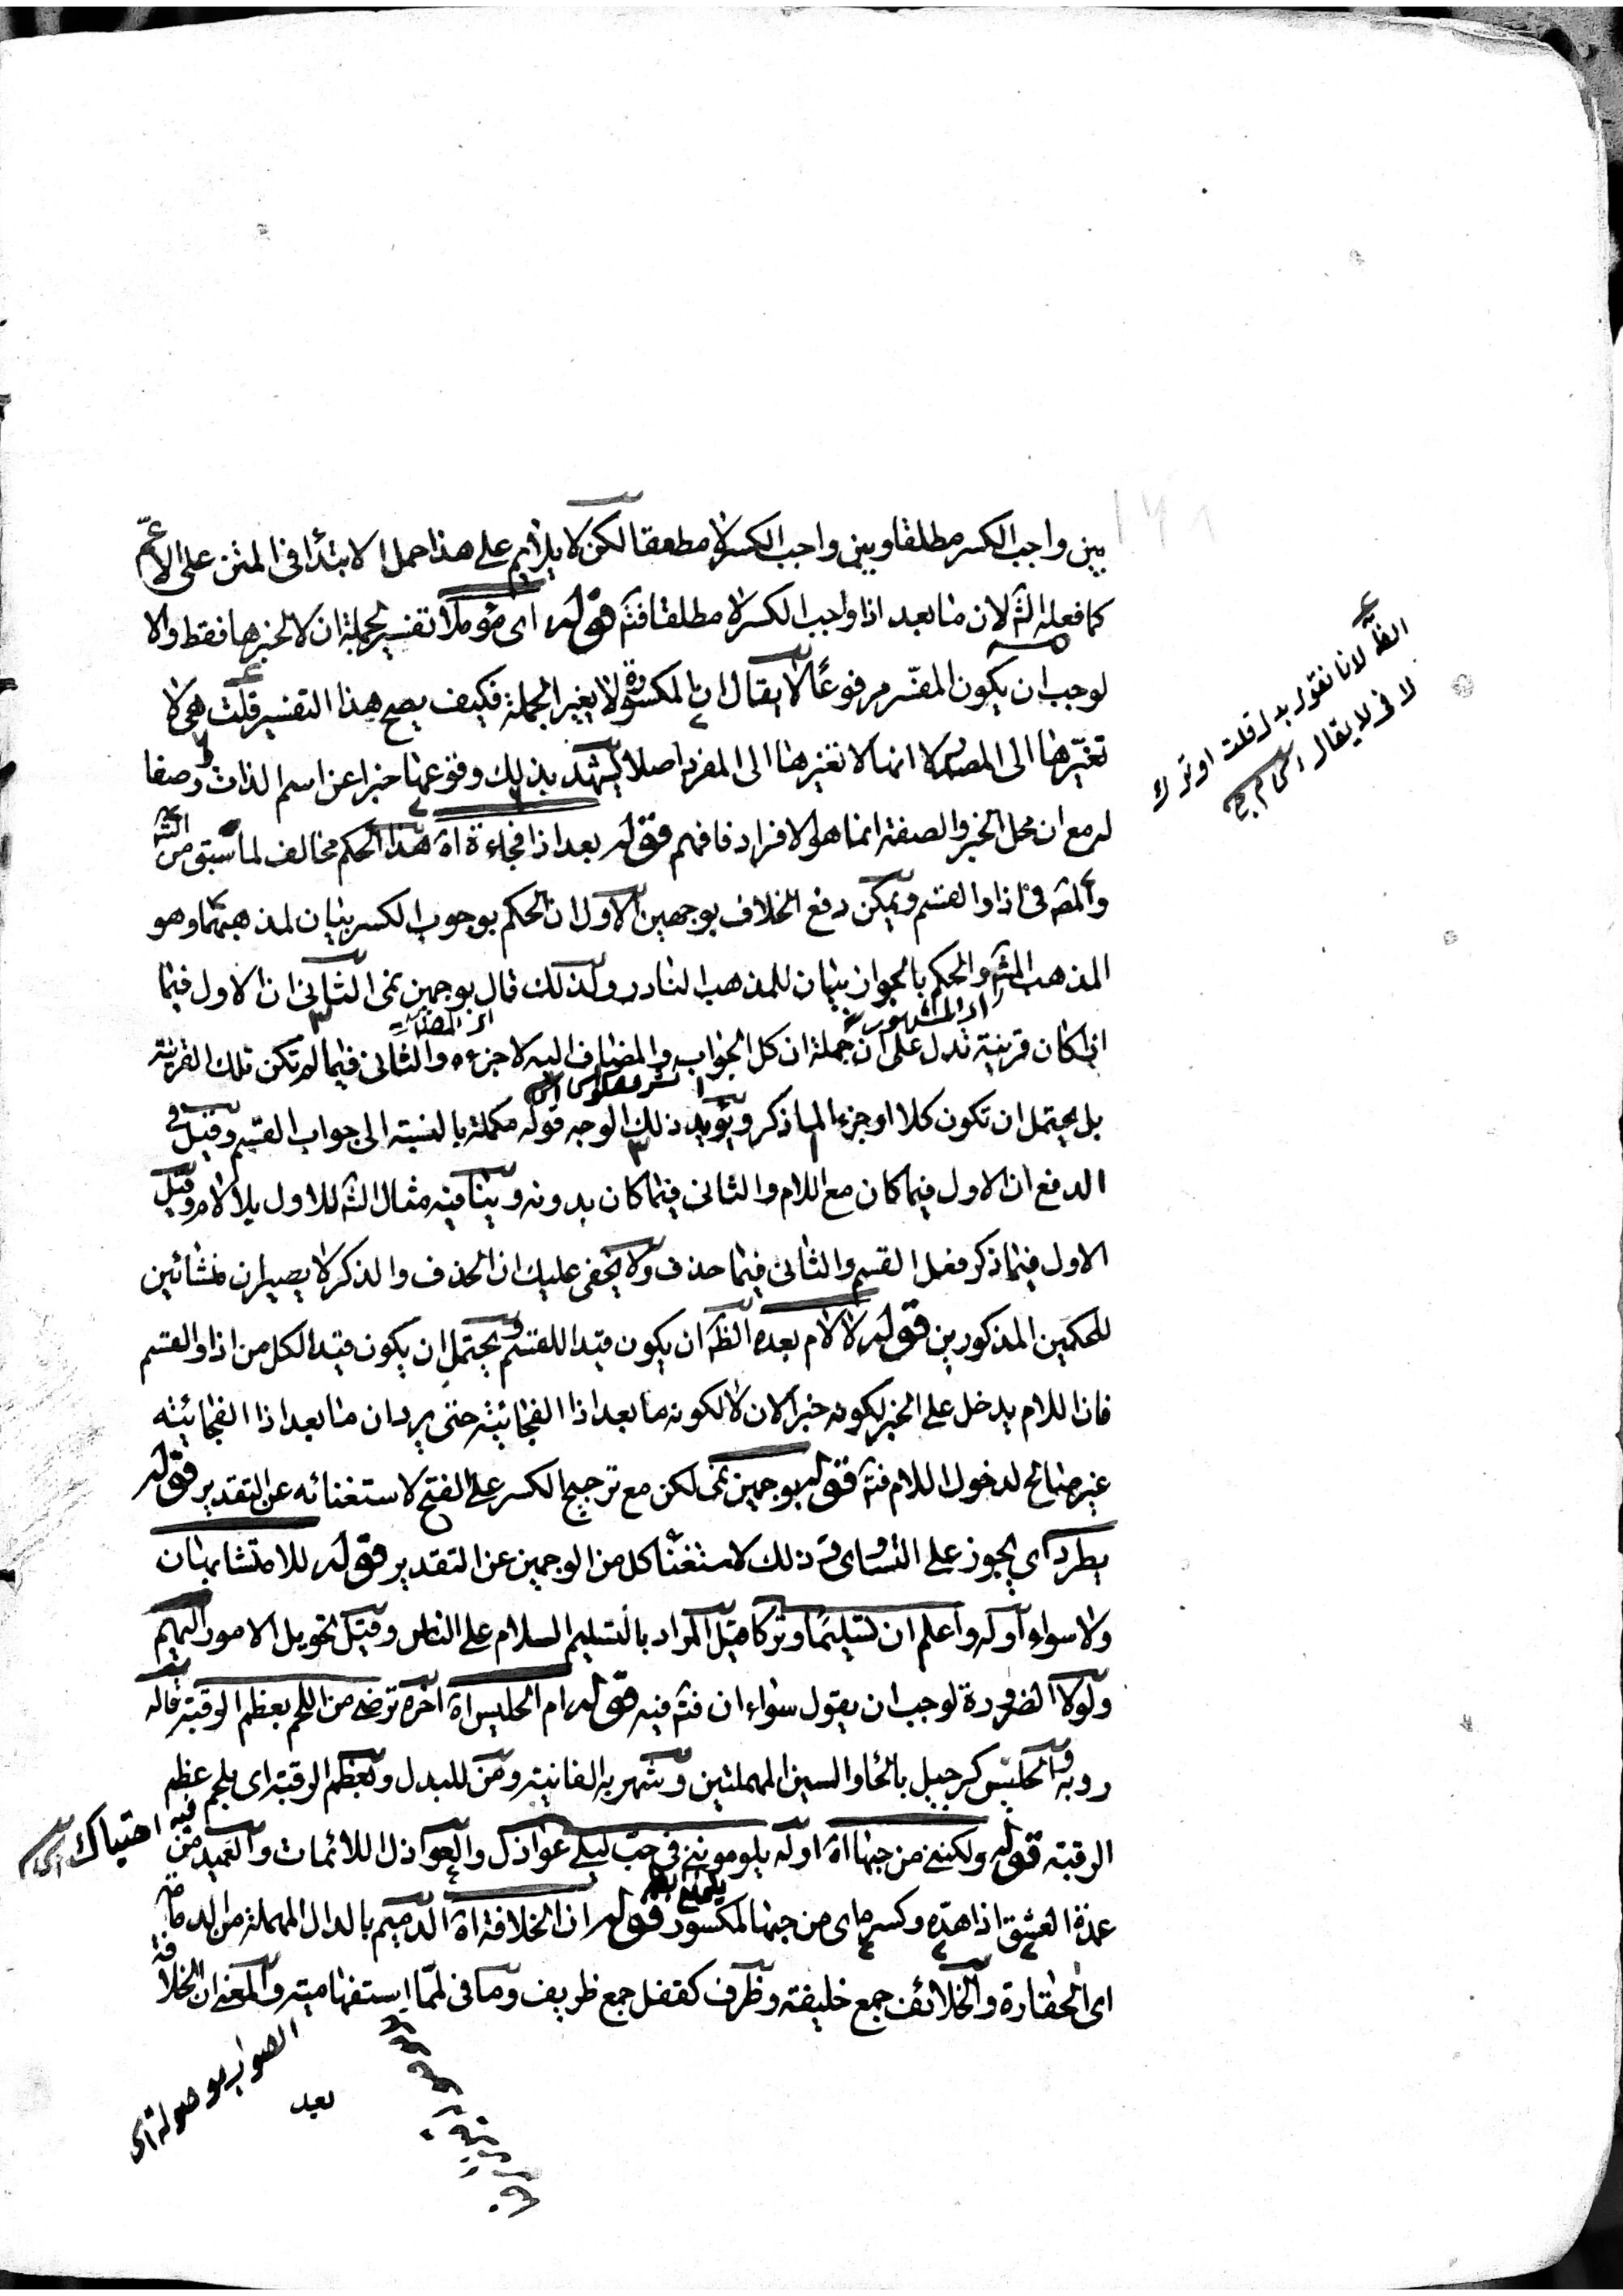 بين واجب الكسر مطلقا وبين واجب الكسر لا مطلقا لكن لا يلائم على هذا حمل الابتدا في المتن على الاعم
كما فعله الش لان ما بعد اذا واجب الكسر لا مطلقا فتم قوله اى مؤولا تفسير لجملة ان لا لخبرها فقط والا
لوجب ان يكون المفسر مرفوعًا لا يقال ان المكسورة لا يغير الجملة فكيف يصح هذا التفسير قلت هى لا
تغيّرها الى المصدر لا انها لا تغيرها الى المفرد اصلا يشهد بذلك وقوعها خبرا عن اسم الذات وصفا
له مع ان محل الخبر والصفة انما هو الافراد فافهم قوله بعد اذا فجاءة اه هذا الحكم مخالف لما سبق من الش
والمص فى اذا والقسم ويمكن دفع الخلاف بوجهين الاول ان الحكم بوجوب الكسر بيان لمذهبهما وهو
المذهب المش والحكم بالجواز بيان للمذهب النادر ولذلك قال بوجهين نمى الثانى ان الاول فيما
اذا كان قرينة تدل على ان جملة ان كل الجواب والمضاف اليه لا جزءه والثانى فيما لم تكن تلك القرينة
بل يحتمل ان تكون كلا او جزءا لما ذكر ويؤيد ذلك الوجه قوله مكملة بالنسبة الى جواب القسم وقيل فى
الدفع ان الاول فيما كان مع اللام والثانى فيما كان بدونه وينافيه مثال الش للاول بلا لام وقيل
الاول فيما ذكر فعل القسم والثانى فيما حذف ولا يخفى عليك ان الحذف والذكر لا يصيران منشائين
للحكمين المذكورين قوله لا لام بعده الظ ان يكون قيدا للقسم ويحتمل ان يكون قيدا لكل من اذا والقسم
فان اللام يدخل على الخبر لكونه خبرا لان لا لكونه ما بعد اذا الفجائية حتى يرد ان ما بعد اذا الفجائية
غير صالح لدخول اللام فتم قوله بوجهين نمى لكن مع ترجيح الكسر على الفتح لاستغنائه عن التقدير قوله
يطرد اى يجوز على التساوى وذلك لاستغنا كل من الوجهين عن التقدير قوله للا متشابهان
ولا سواء اوله واعلم ان تسليما وتركا قيل المراد بالتسليم السلام على الناس وقيل تحويل الامور اليهم
ولولا الضرورة لوجب ان يقول سواءان فتم فيه قوله ام الحليس اه اخره ترضى من اللحم بعظم الرقبة قاله
روبة والحليس كرجيل بالحا والسين المهملتين وشهربه الفانية ومن للبدل وبعظم الرقبة اى بلحم عظم
الرقبة قوله ولكننى من حبها اه اوله يلوموننى فى حب ليلى عواذل والعواذل اللائمات والعميد من
عمدة العشق اذا هدّه وكسره اى من حبها لمكسور قوله ان الخلافة اه الدميم بالدال المهملة من الدمامة
اى الحقارة والخلائف جمع خليفة وظرف كقفل جمع ظريف وما فى لمّا استفهامية والمعنى ان الخلافة
الظ لانا نقول بدل قلت او ترك
لا فى لا يقال
اى المشهور
فيه احتباك
الصواب موصولة اى
بعيد